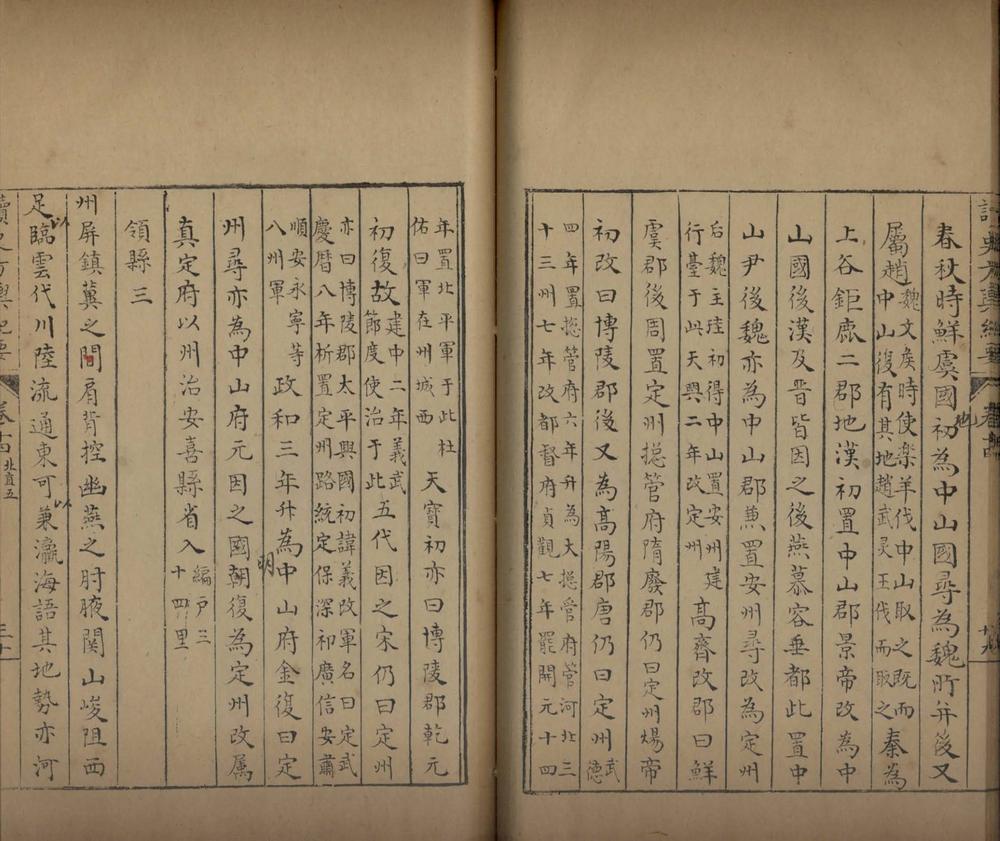 春秋時鮮虞國初為中山國尋為魏所并後又
屬趙魏文矦時使楽羊伐中山取之既而中山復有其地趙武灵王伐而取之秦為
上谷鉅鹿二郡地漢初置中山郡景帝改為中
山國後漢及晋皆因之後燕慕容垂都此置中
山尹後魏亦為中山郡兼置安州尋改為定州
后魏主珪初得中山置安州建行臺于此天興二年改定州髙齊改郡曰鮮
虞郡後周置定州揔管府隋廢郡仍曰定州煬帝
初改曰博陵郡後又為髙陽郡唐仍曰定州武德
四年置揔管府六年升為大揔管府管河北三
十三州七年改都督府貞觀七年罷開元十四
年置北平軍于此杜佑曰軍在州城西天寶初亦曰博陵郡乾元
初復故建中二年義武節度使治于此五代因之宋仍曰定州
亦曰博陵郡太平興國初諱義改軍名曰定武
慶暦八年析置定州路統定保深祁廣信安肅
順安永寧等八州軍政和三年升為中山府金復曰定
州尋亦為中山府元因之國朝復為定州改属
明
真定府以州治安喜縣省入編戸三十四里
領縣三
州屏鎮冀之間肩背控幽燕之肘腋関山峻阻西
足以臨雲代川陸流通東可以兼瀛海語其地勢亦河
讀史方輿紀要 卷十四 北直五